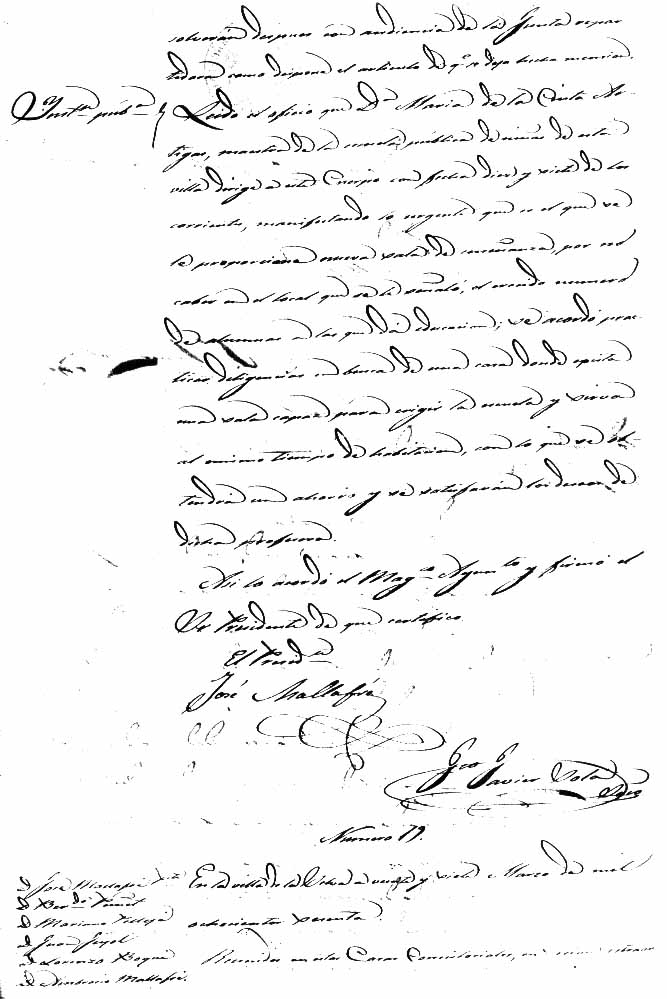 solverán despues con audiencia de la Junta repar
tidora como dispone el articulo de q.e se deja hecha mencion.
Inst.on pub.ca
Leido el oficio que D.a Maria de la Cinta Ar-
tigas, maestra de la escuela pública de niñas de esta
villa dirige a este Cuerpo con fecha diez y siete de los
corrientes, manifestando lo urgente que es el que se
le proporcione nueva sala de enseñanza, por no
caber en el local que se le señaló, el crecido numero
de alumnas a las que dá educacion; se acordó prac-
ticar diligencias en busca de una casa donde exista
una sala capaz para erigir la escuela y sirva
al mismo tiempo de habitacion, con lo que se ob-
tendrá un ahorro y se satisfarán los deseos de
dicha profesora.
Asi lo acordó el Mag.co Ayun.to y firmó el
Sr Presidente de que certifico.
El Presid.te
José Mallafré
Fco J
Javier Sola
Srio
Número 19.
D José Mallafré
D Mariano
D Juan
D Lorenzo Boqué
D Ambrosio Mallafré.
En la villa de la Selva a veinte y siete Marzo de mil
ochocientos sesenta.
Reunidos en estas Casas Consistoriales, en